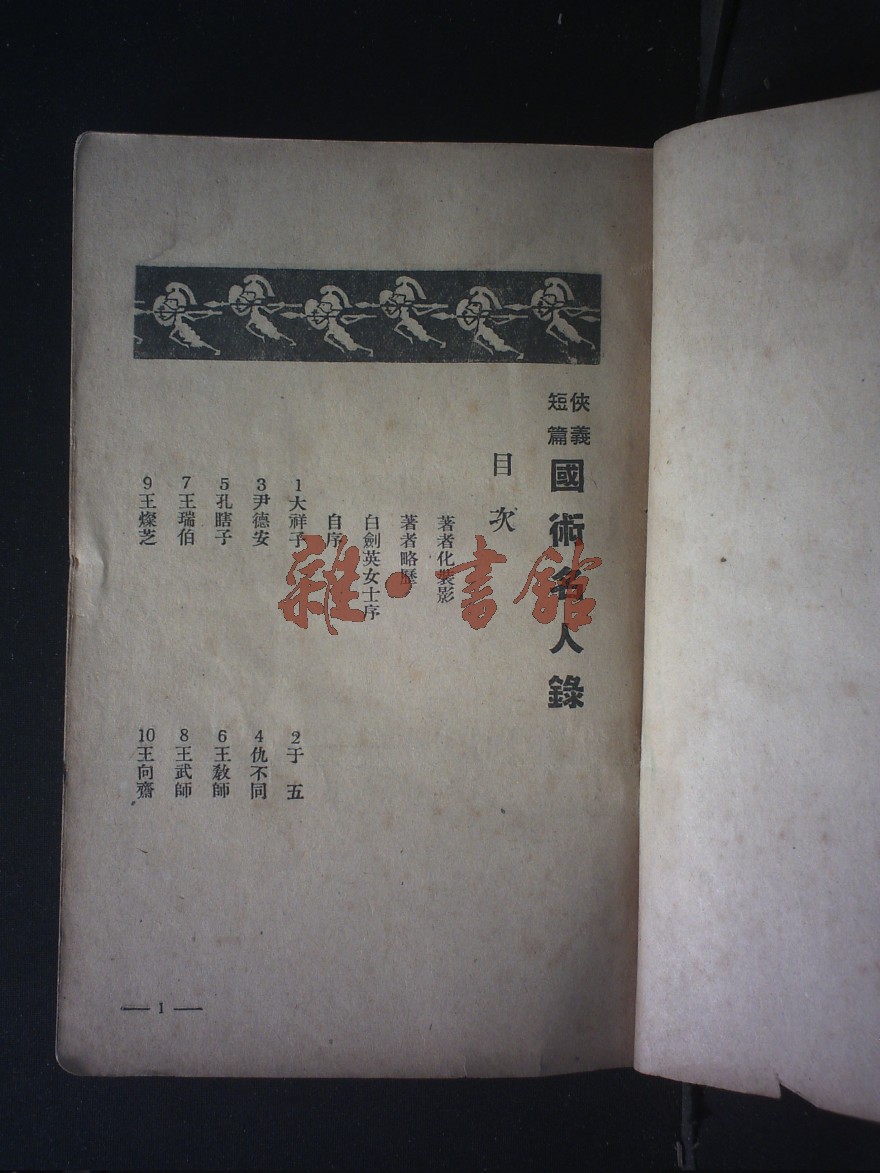 俠義
短篇
國術名人錄
目次
著者化裝影
著者略歷
白劍英女士序
自序
1大祥子
2于 五
3尹德安
4仇不同
5孔瞎子
6王教師
7王瑞伯
8王武師
9王燦芝
10王向齋
— 1 —
雜·書館